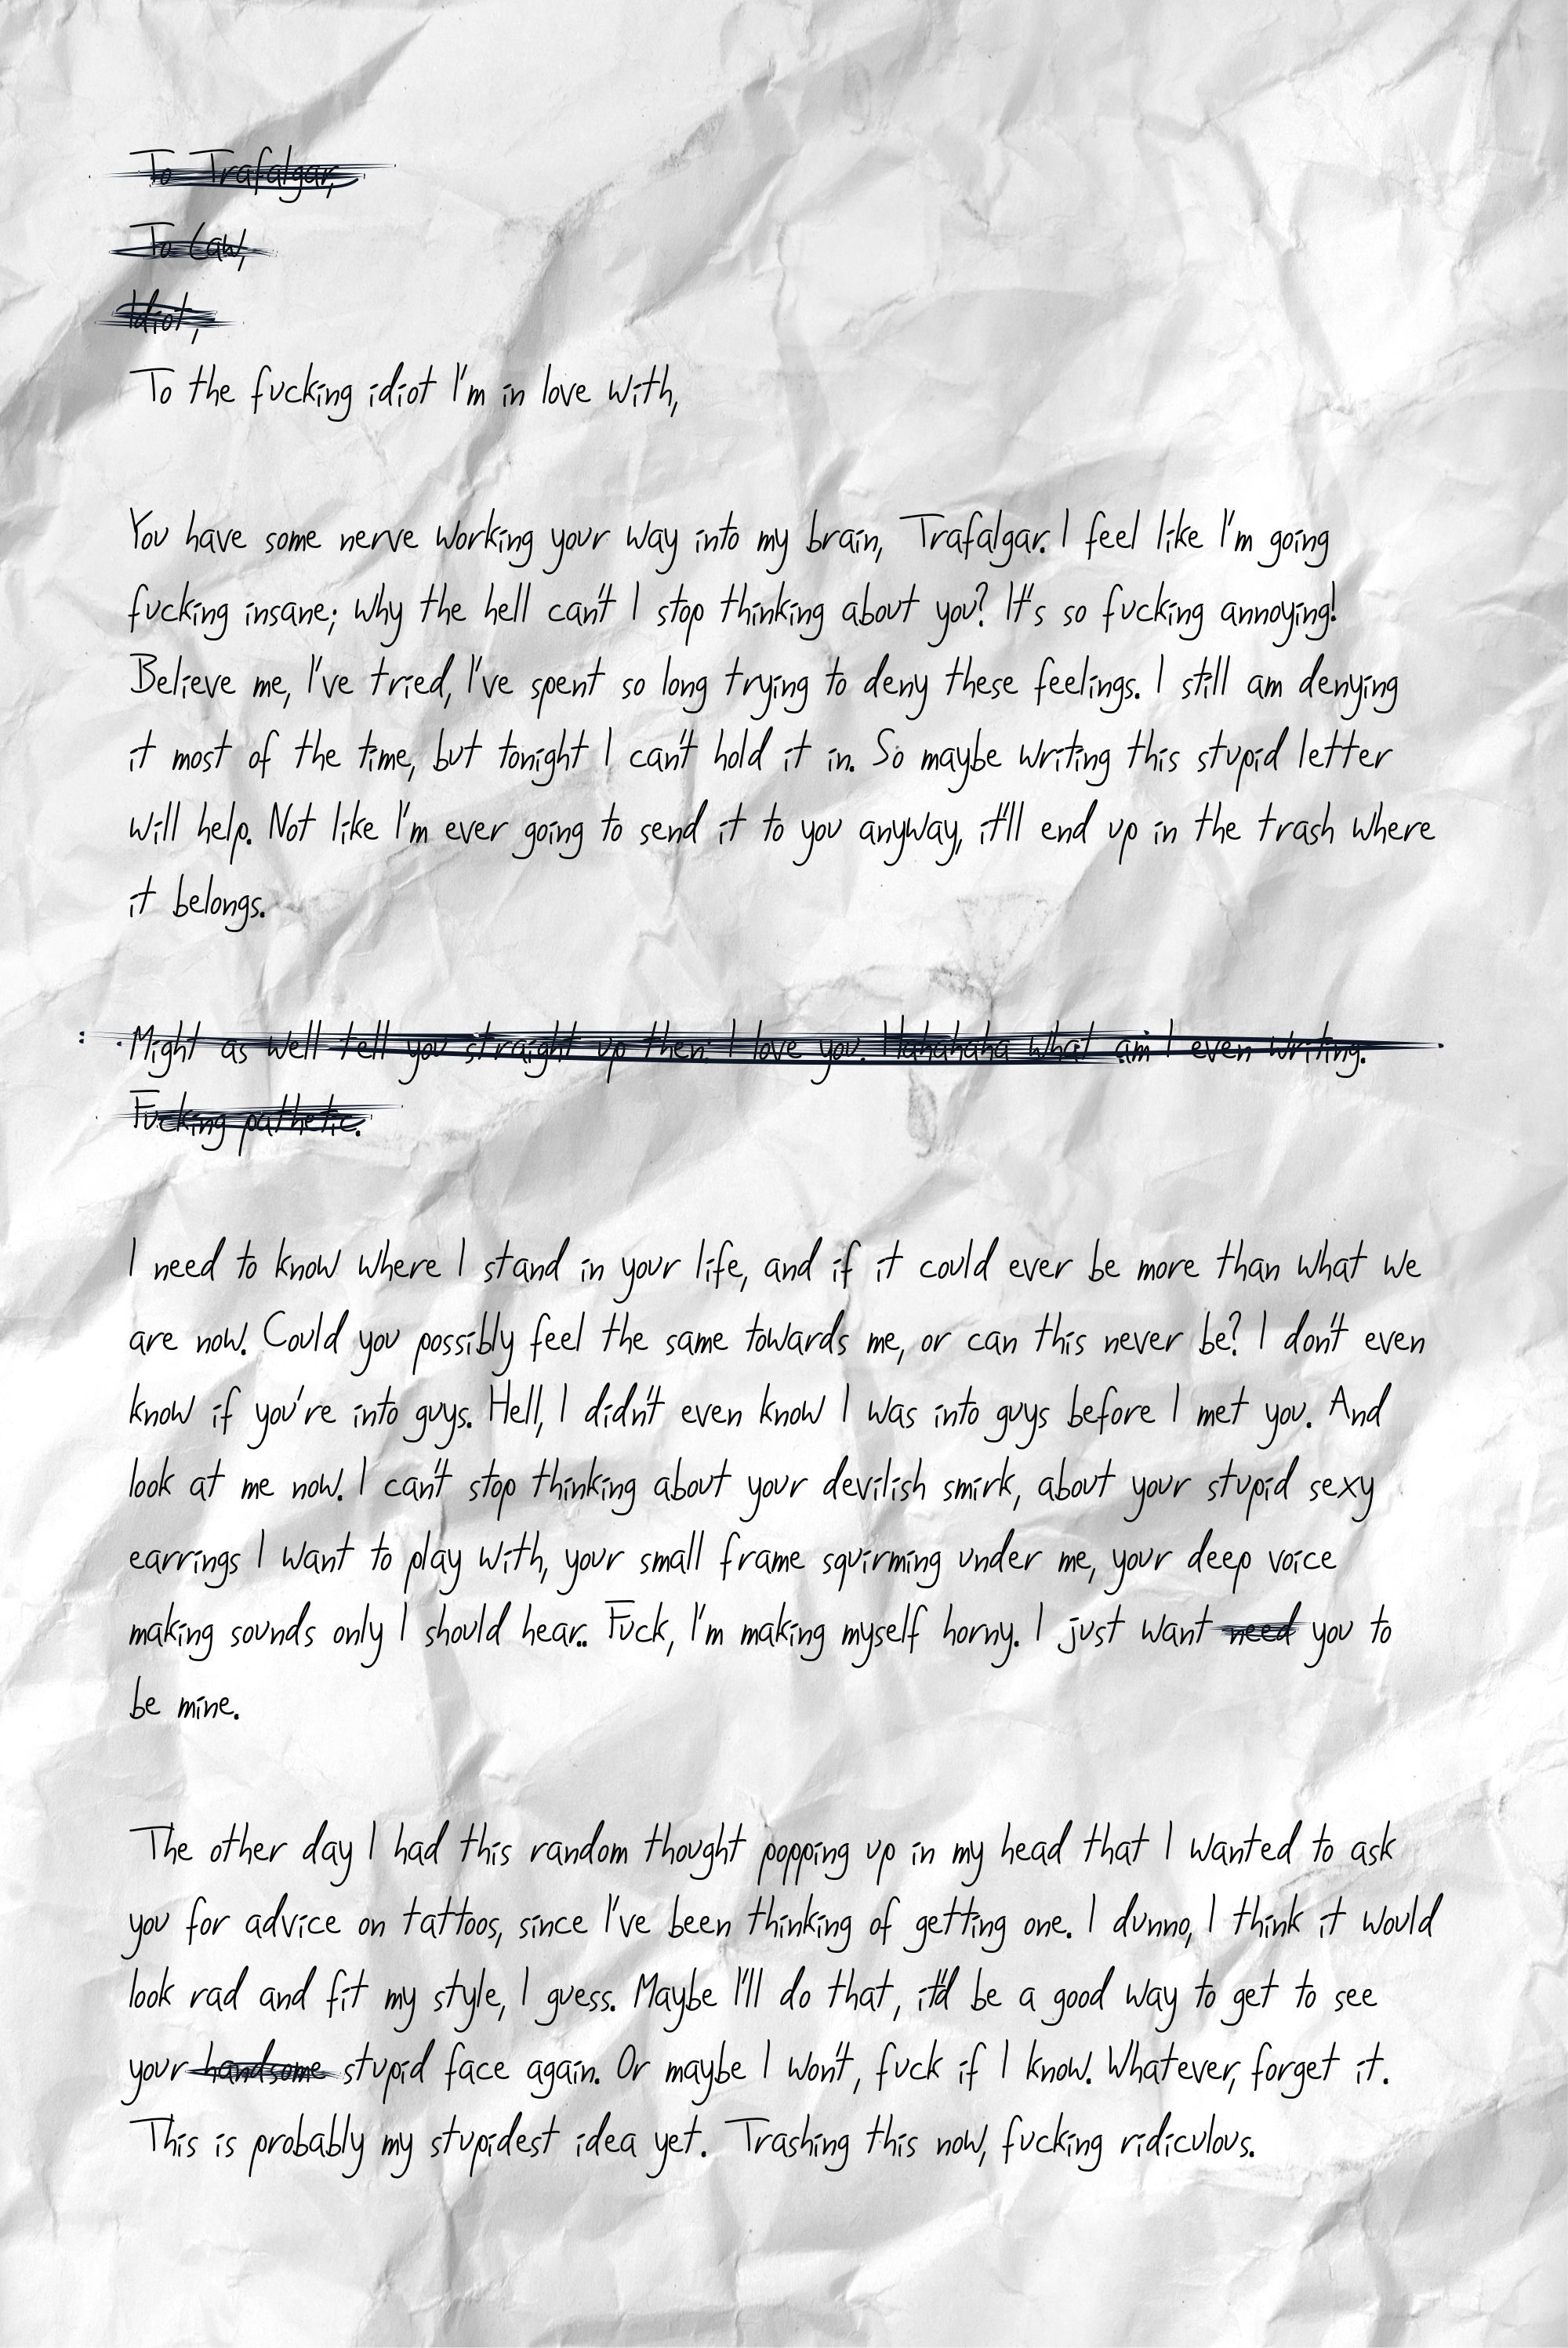 To Trafalgar,
To Law,
Idiot,
To the fucking idiot I'm in love with,
You have some nerve working your way into my brain, Trafalgar. I feel like I'm going
fucking insane; why the hell can't I stop thinking about you? It's so fucking annoying!
Believe me, I've tried, I've spent so long trying to deny these feelings. I still am denying
it most of the time, but tonight I can't hold it in. So maybe writing this stupid letter
will help. Not like I'm ever going to send it to you anyway, it'll end up in the trash where
it belongs.
Might as well tell you straight up then: I love you. Hahahaha what am I even writing.
Fucking pathetic.
I need to know where I stand in your life, and if it could ever be more than what we
are now. Could you possibly feel the same towards me, or can this never be? I don't even
know if you're into guys. Hell, I didn't even know I was into guys before I met you. And
look at me now. I can't stop thinking about your devilish smirk, about your stupid sexy
earrings I want to play with, your small frame squirming under me, your deep voice
making sounds only I should hear.. Fuck, I'm making myself horny. I just want need you to
be mine.
The other day I had this random thought popping up in my head that I wanted to ask
you for advice on tattoos, since I've been thinking of getting one. I dunno, I think it would
look rad and fit my style, I guess. Maybe I'll do that, it'd be a good way to get to see
your handsome stupid face again. Or maybe I won't, fuck if I know. Whatever, forget it.
This is probably my stupidest idea yet. Trashing this now, fucking ridiculous.